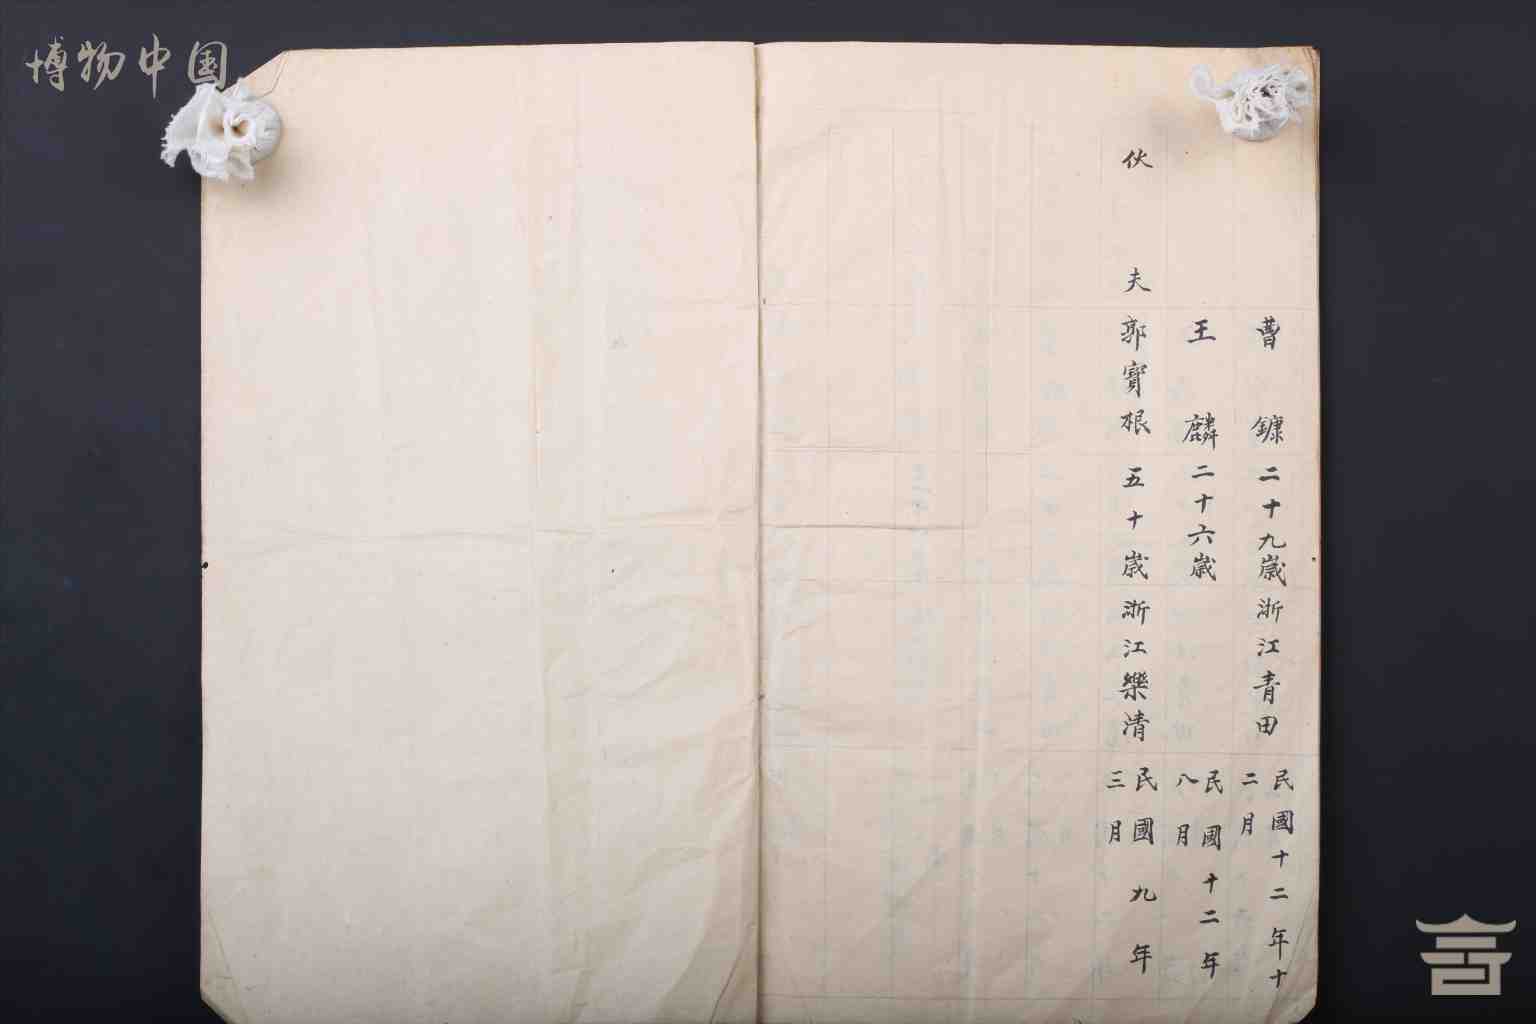 博物中国
曹鏮 二十九歲 浙江青田 民國十二年十二月
王麟 二十六歲 民國十二年八月
伙夫 郭寶根 五十歲 浙江樂清 民國九年三月